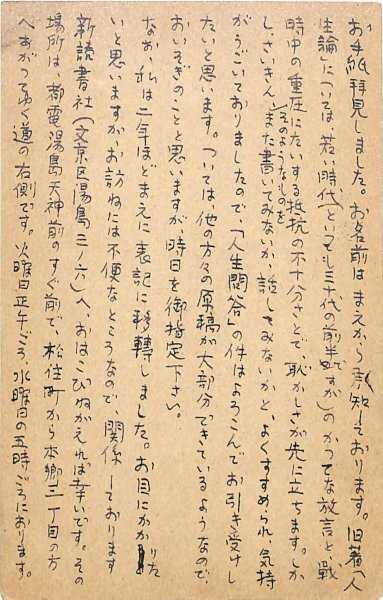 お手紙拝見しました。お名前はまえから承知しております。旧著「人
生論」については若い時代(といっても三十代の前半ですが)のかってな放言と、戦
時中の重圧にたいする抵抗の不十分さとで、恥かしさが先に立ちます。しか
し、さいきん、そのようなものをまた書いてみないか、話してみないかと、よくすすめられ、気持
がうごいておりましたので、「人生問答」の件はよろこんでお引き受けし
たいと思います。ついては、他の方々の原稿が大部分できているようなので、
おいそぎのことと思いますが、時日を御指定下さい。
なお、私は二年ほどまえに表記に移轉しました。お目にかかりた
いと思いますが、お訪ねには不便なところなので、関係しております
新読書社(文京区湯島三ノ六)へ、おはこびねがえれば幸いです。その
場所は、都電湯島天神前のすぐ前で、松住町から本郷三丁目の方
へあがってゆく道の右側です。火曜日正午ごろ、水曜日の五時ごろにおります。